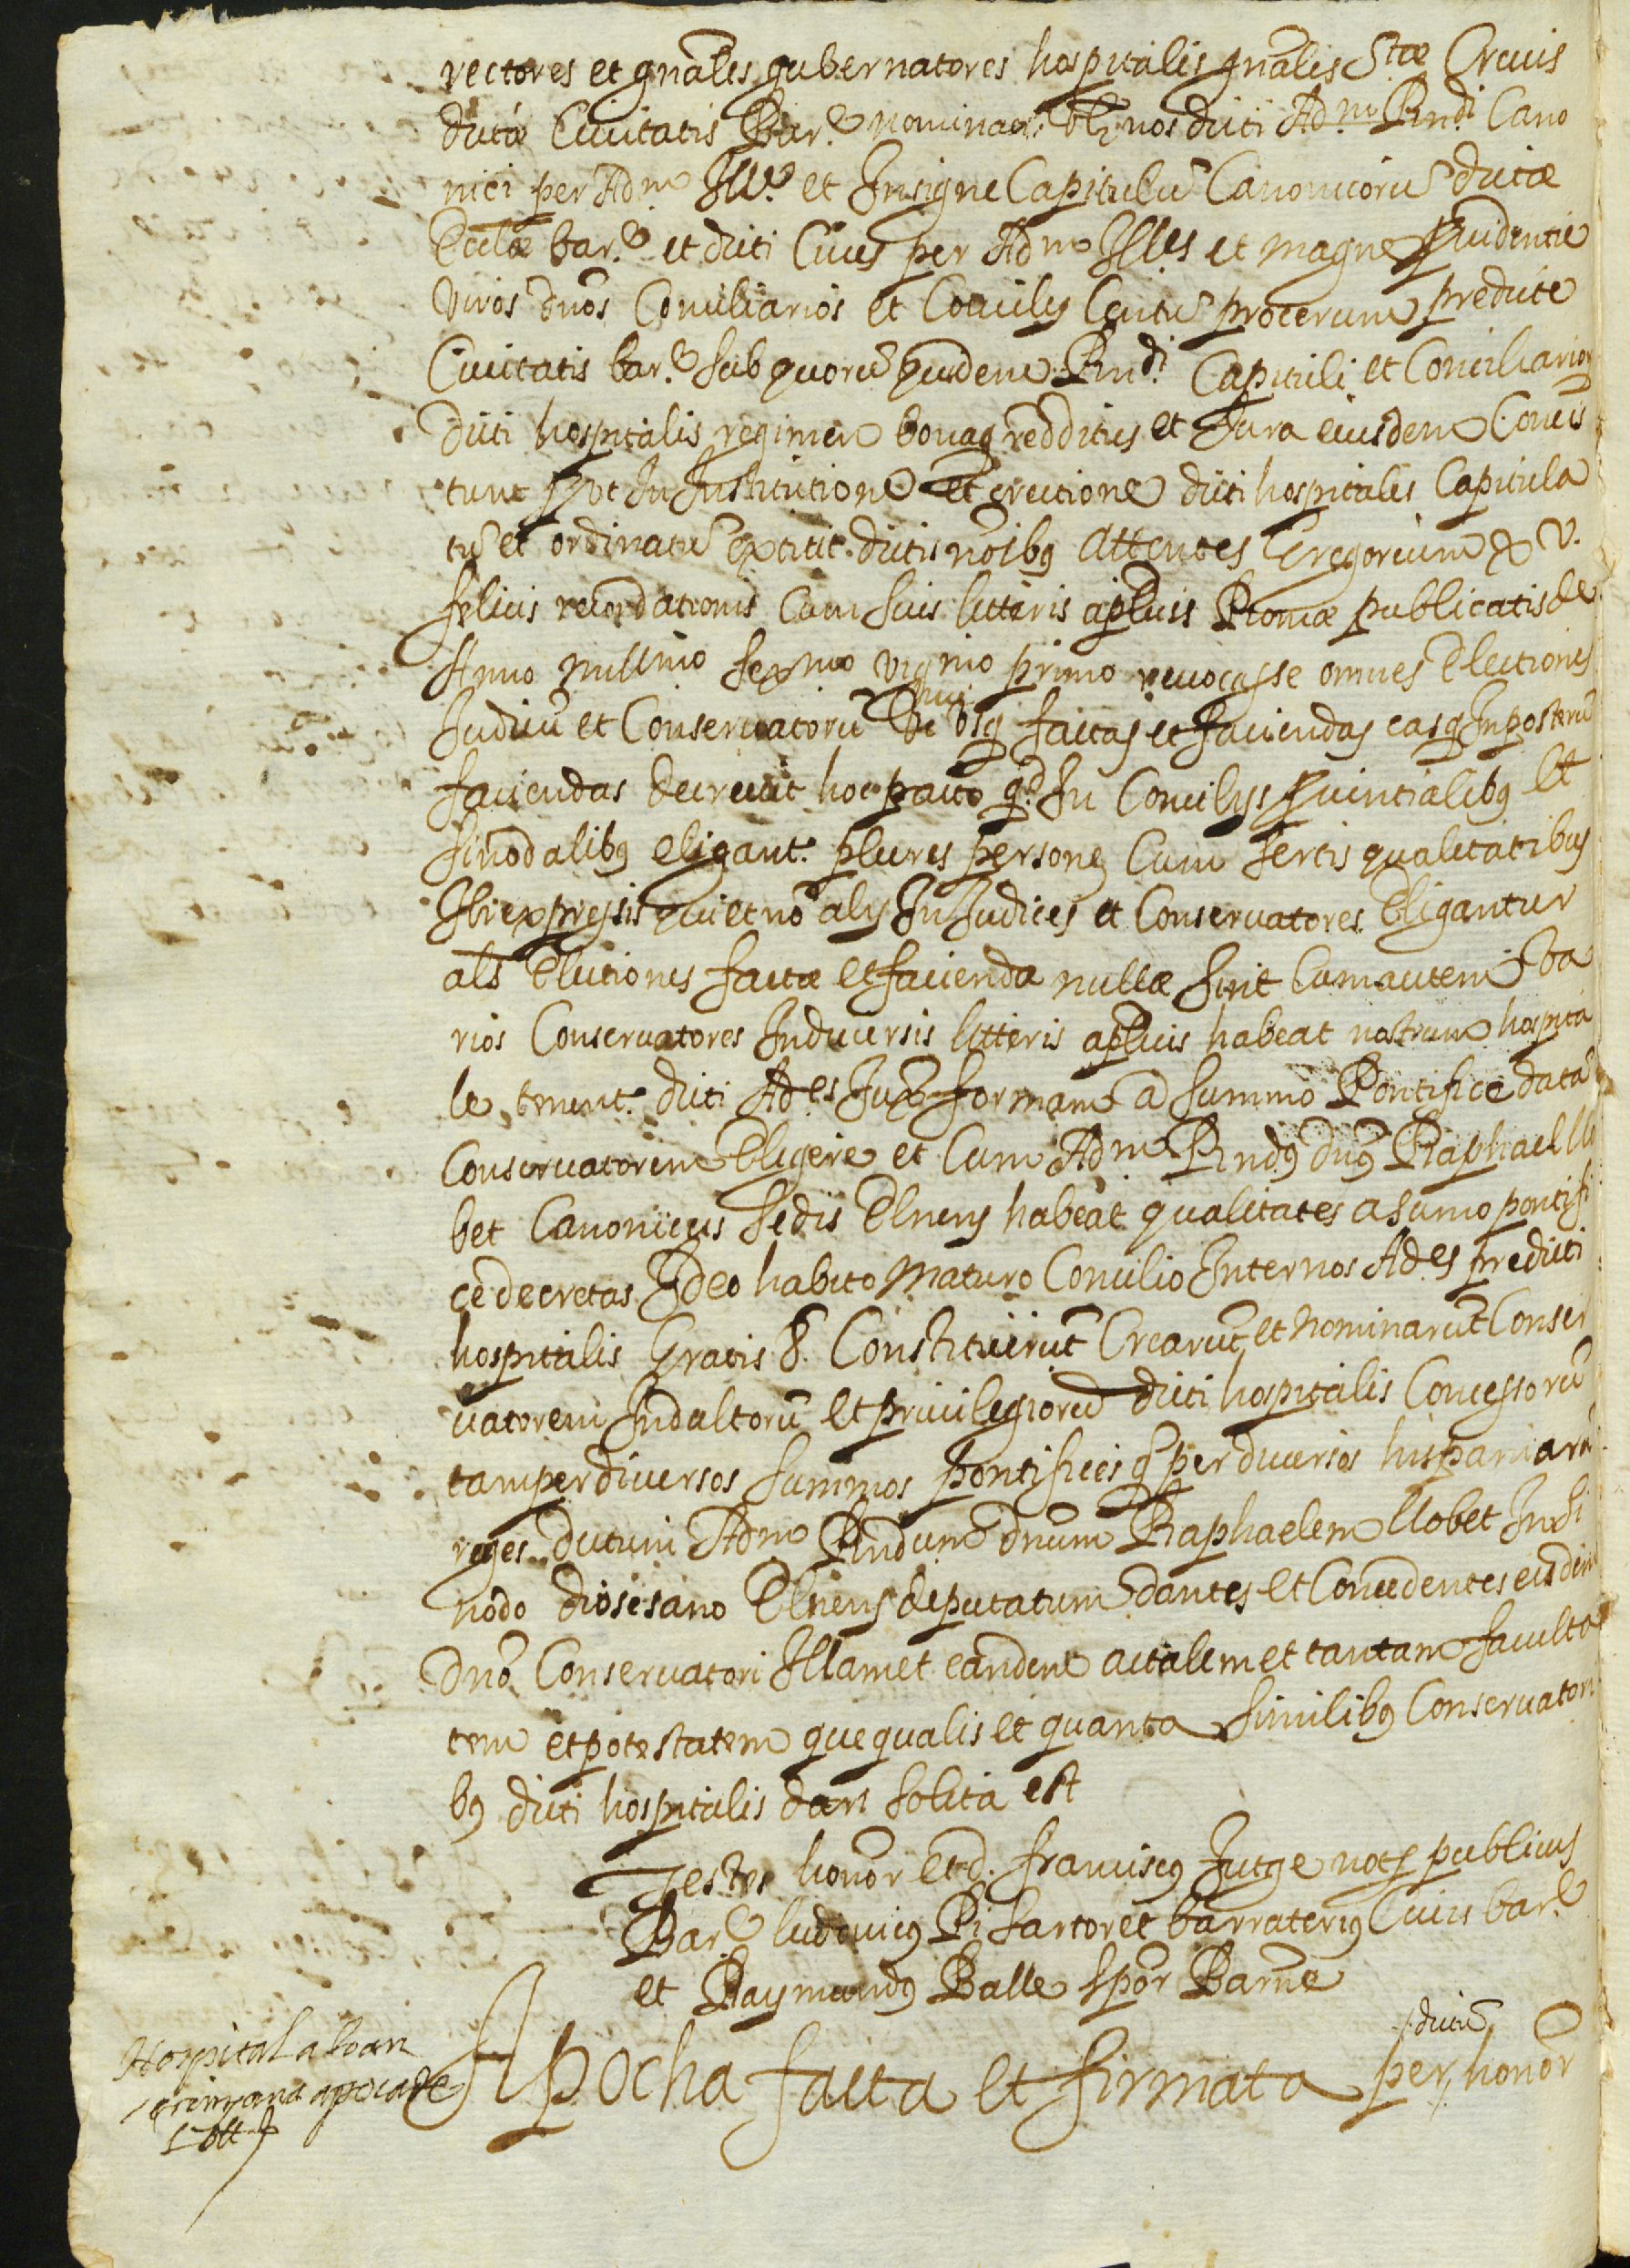 rectores et gnales gubernatores hospitalis gnalis Stæ Crucis
dictæ Civitatis Bar.e nominati nos dicti Ad.m Rndi Cano
nici per Adm Ille et Insigne Capitulu Canonicoru dictæ
Ecclæ bar.e et dicti Cives per Adm Illes et magne providentie
viros dnos Conciliarios et Concilij Centu procerum predicte
Civitatis bar.e sub quoru quidem Rndi Capituli et Conciliarior
dicti hospitalis regimen bonaq redditus et Jura eiusdem Concis
tunt prout In Institutione et erectione dicti hospitalis Capitula
tu et ordinatu extitit dictis noibq Attentes Gregorium X V.
felicis recordationis Cum suis litteris aplicis Romæ publicatis de
Anno millmo sexmo vigmo primo revocasse omnes Electiones
Judicu et Conservatoru hui usq factas et faciendas easq In posteru
faciendas decrevit hoc pacto qd In Concilijs provintialibq et
sinodalibq eligant.r plures persone Cum sertis qualitatibus
Ibi expressis qui et no alij In Judices et Conservatores Eligantur
als Electiones factæ et faciendæ nullæ sint Cum autem Va
rios Conservatores In diversis litteris aplicis habeat nostrum hospita
le tenent.r dicti Ades Juxta formam a summo Pontifice data
Conservatorem Eligere et Cum Adm Rndq dnq Raphael Llo
bet Canonicus Sedis Elnens habeat qualitates a sumo pontifi
ce decretas Ideo habito maturo Concilio Inter nos Ades predicti
hospitalis Gratis &. Constituerut Crearut et nominarut Conser
vatorem Indultoru et privilegioru dicti hospitalis Concessoru
tam per diversos summos pontifices q per diversos hispaniaru
reges dictum Adm Rndum dnum Raphaelem Llobet In Si
nodo diosesano Elnens deputatum dantes et Concedentes eisdem
Dno Conservatori Illamet eandem ac talem et tantam faculta
tem et potestatem que qualis et quanta similibq Conservatori
bq dicti hospitalis dari solita est
Testes honor et d. franciscq Jutge notq publicus
Bar.e ludovicq Pi sartor et barraterius Civis bar.e
et Raymundq Balle spor Barne
Hospital a Joan
apoca de
Apocha facta et firmata per honor
dictu